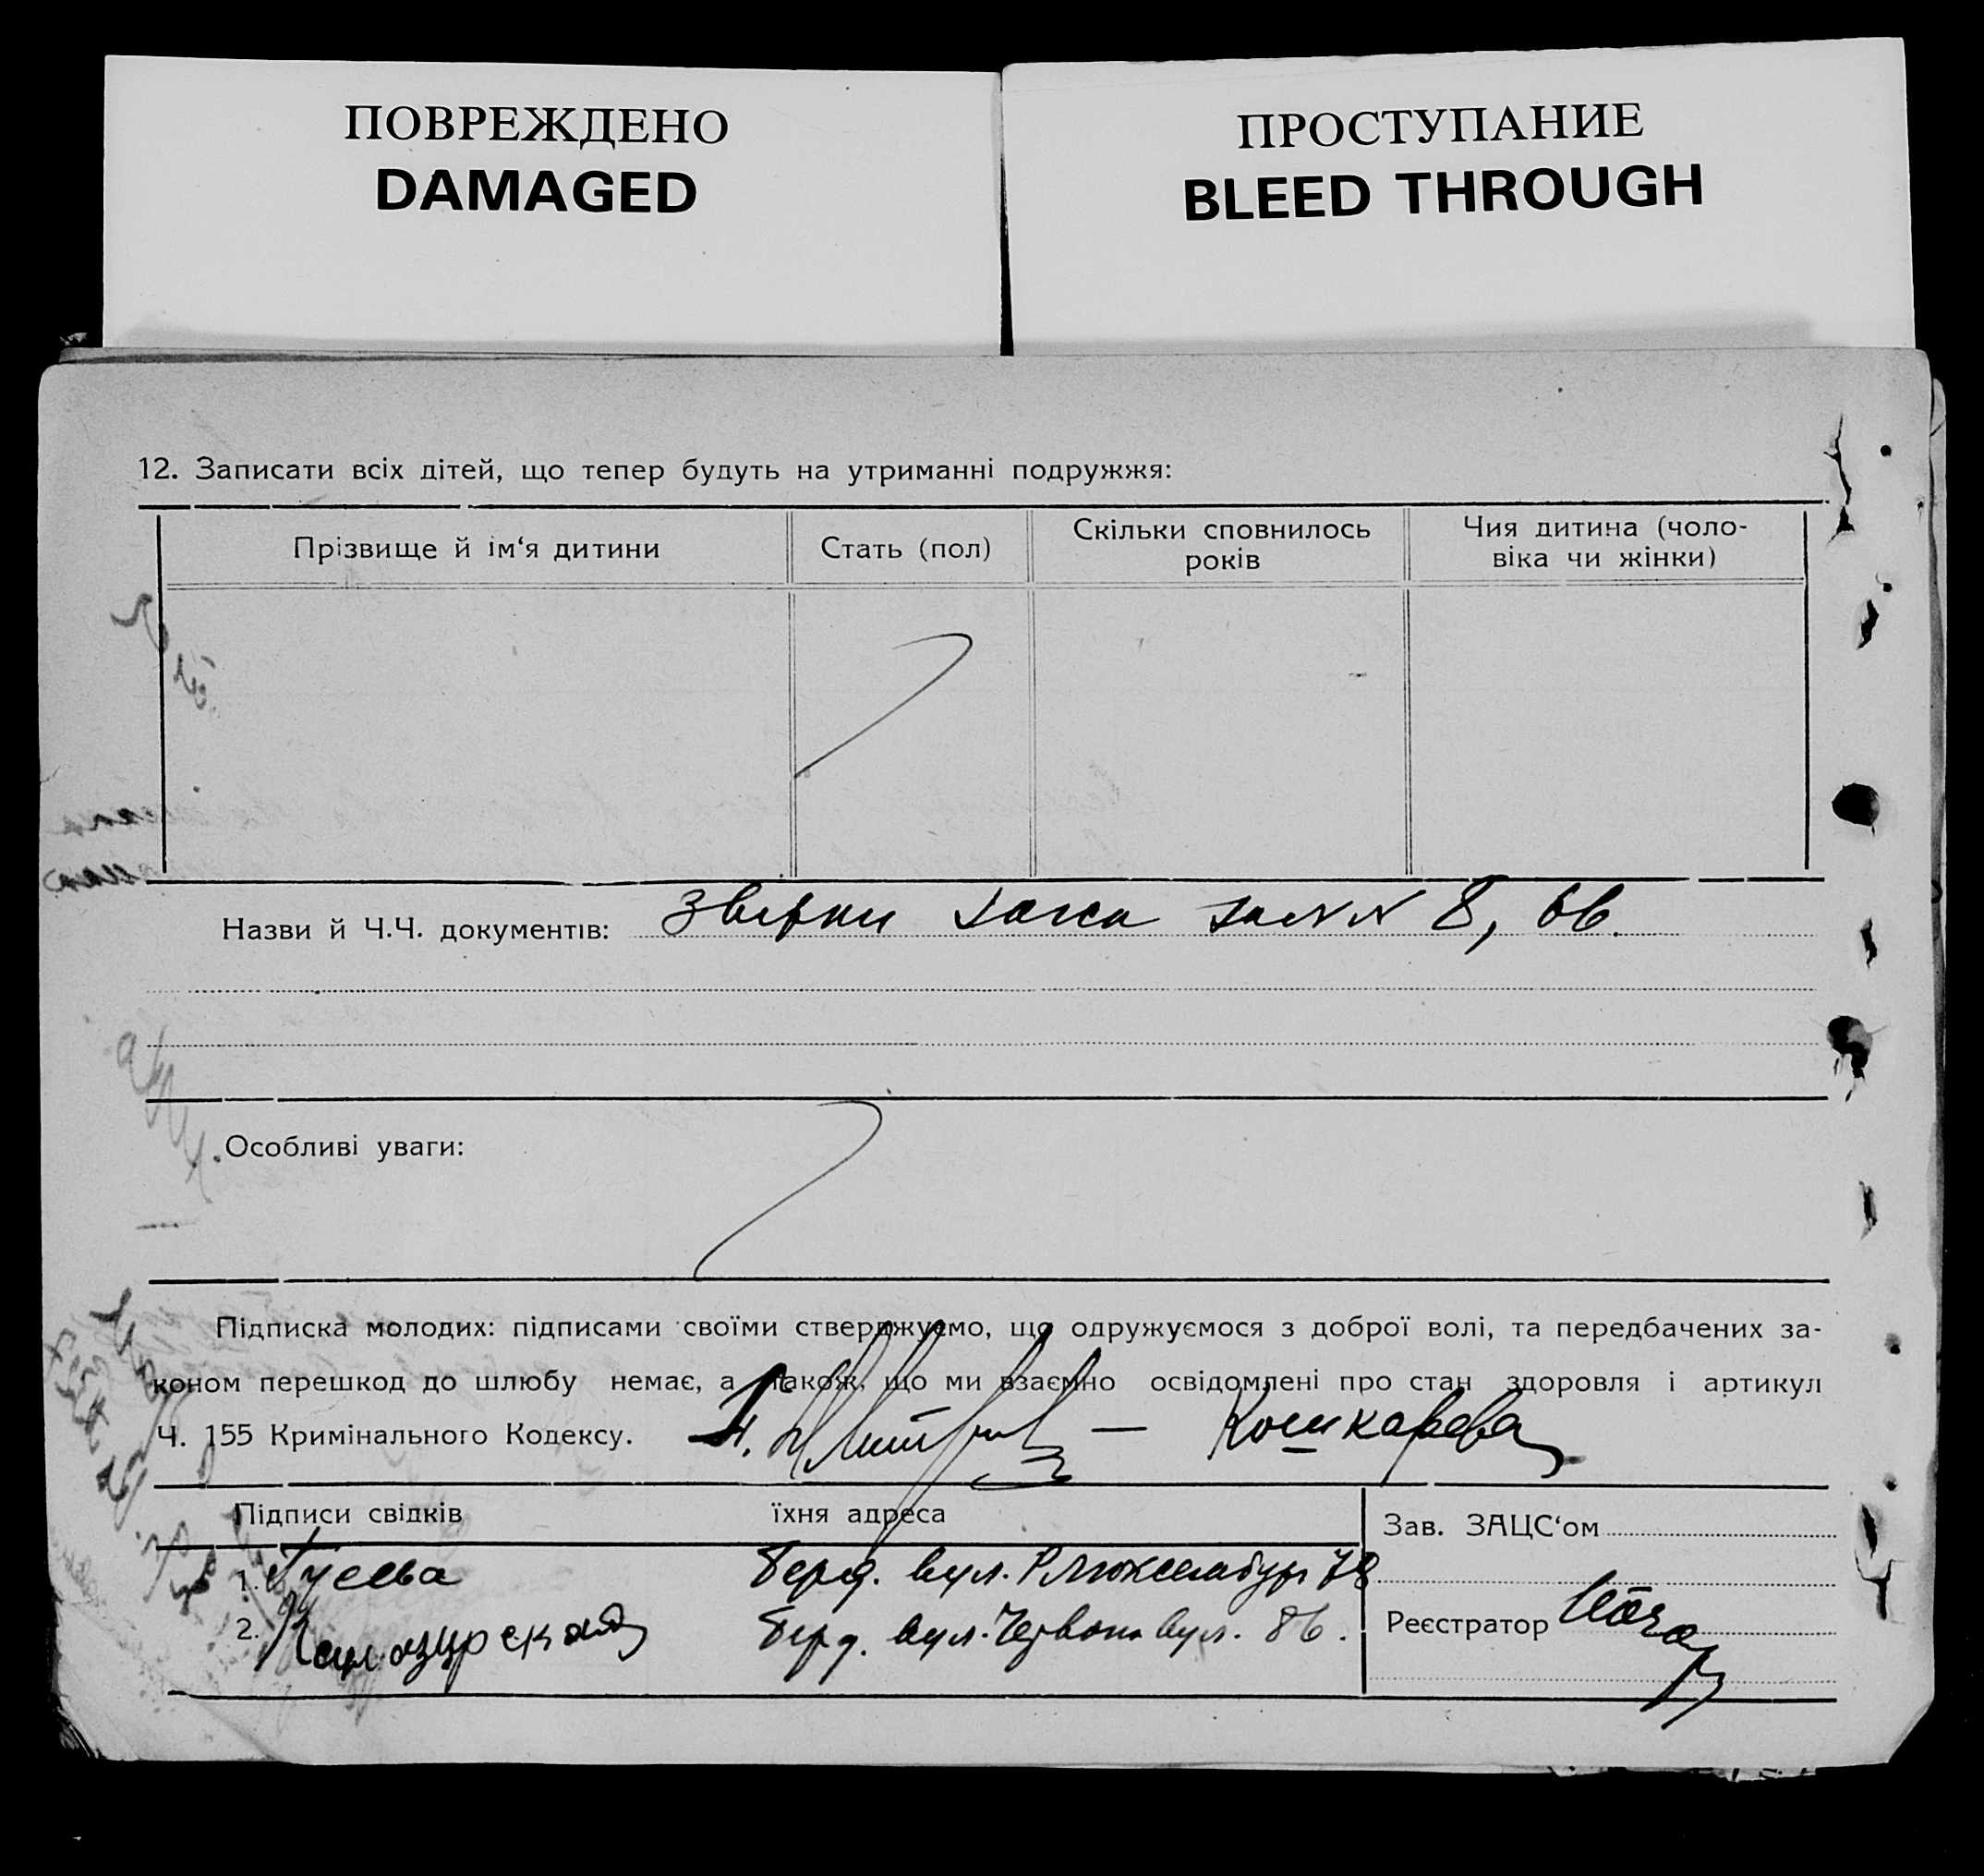 ПОВРЕЖДЕНО
DAMAGED
ПРОСТУПАНИЕ
BLEED THROUGH
12. Записати всіх дітей, що тепер будуть на утриманні подружжя:
Прізвище й ім‘я дитини
Стать (пол)
Скільки сповнилось
років
Чия дитина (чоло-
віка чи жінки)
Назви й Ч.Ч. документів: 8, 66.
Особливі уваги:
Підписка молодих: підписами своїми стверджуємо, що одружуємося з доброї волі, та передбачених за-
коном перешкод до шлюбу немає, а також, що ми взаємно освідомлені про стан здоровля і артикул
Ч. 155 Кримінального Кодексу. — Кошкарева
Підписи свідків їхня адреса
Зав. ЗАЦС‘ом
1. Гусева Берд. вул. Р Люксембург 78
2. Берд. вул. Червона вул. 86.
Реєстратор